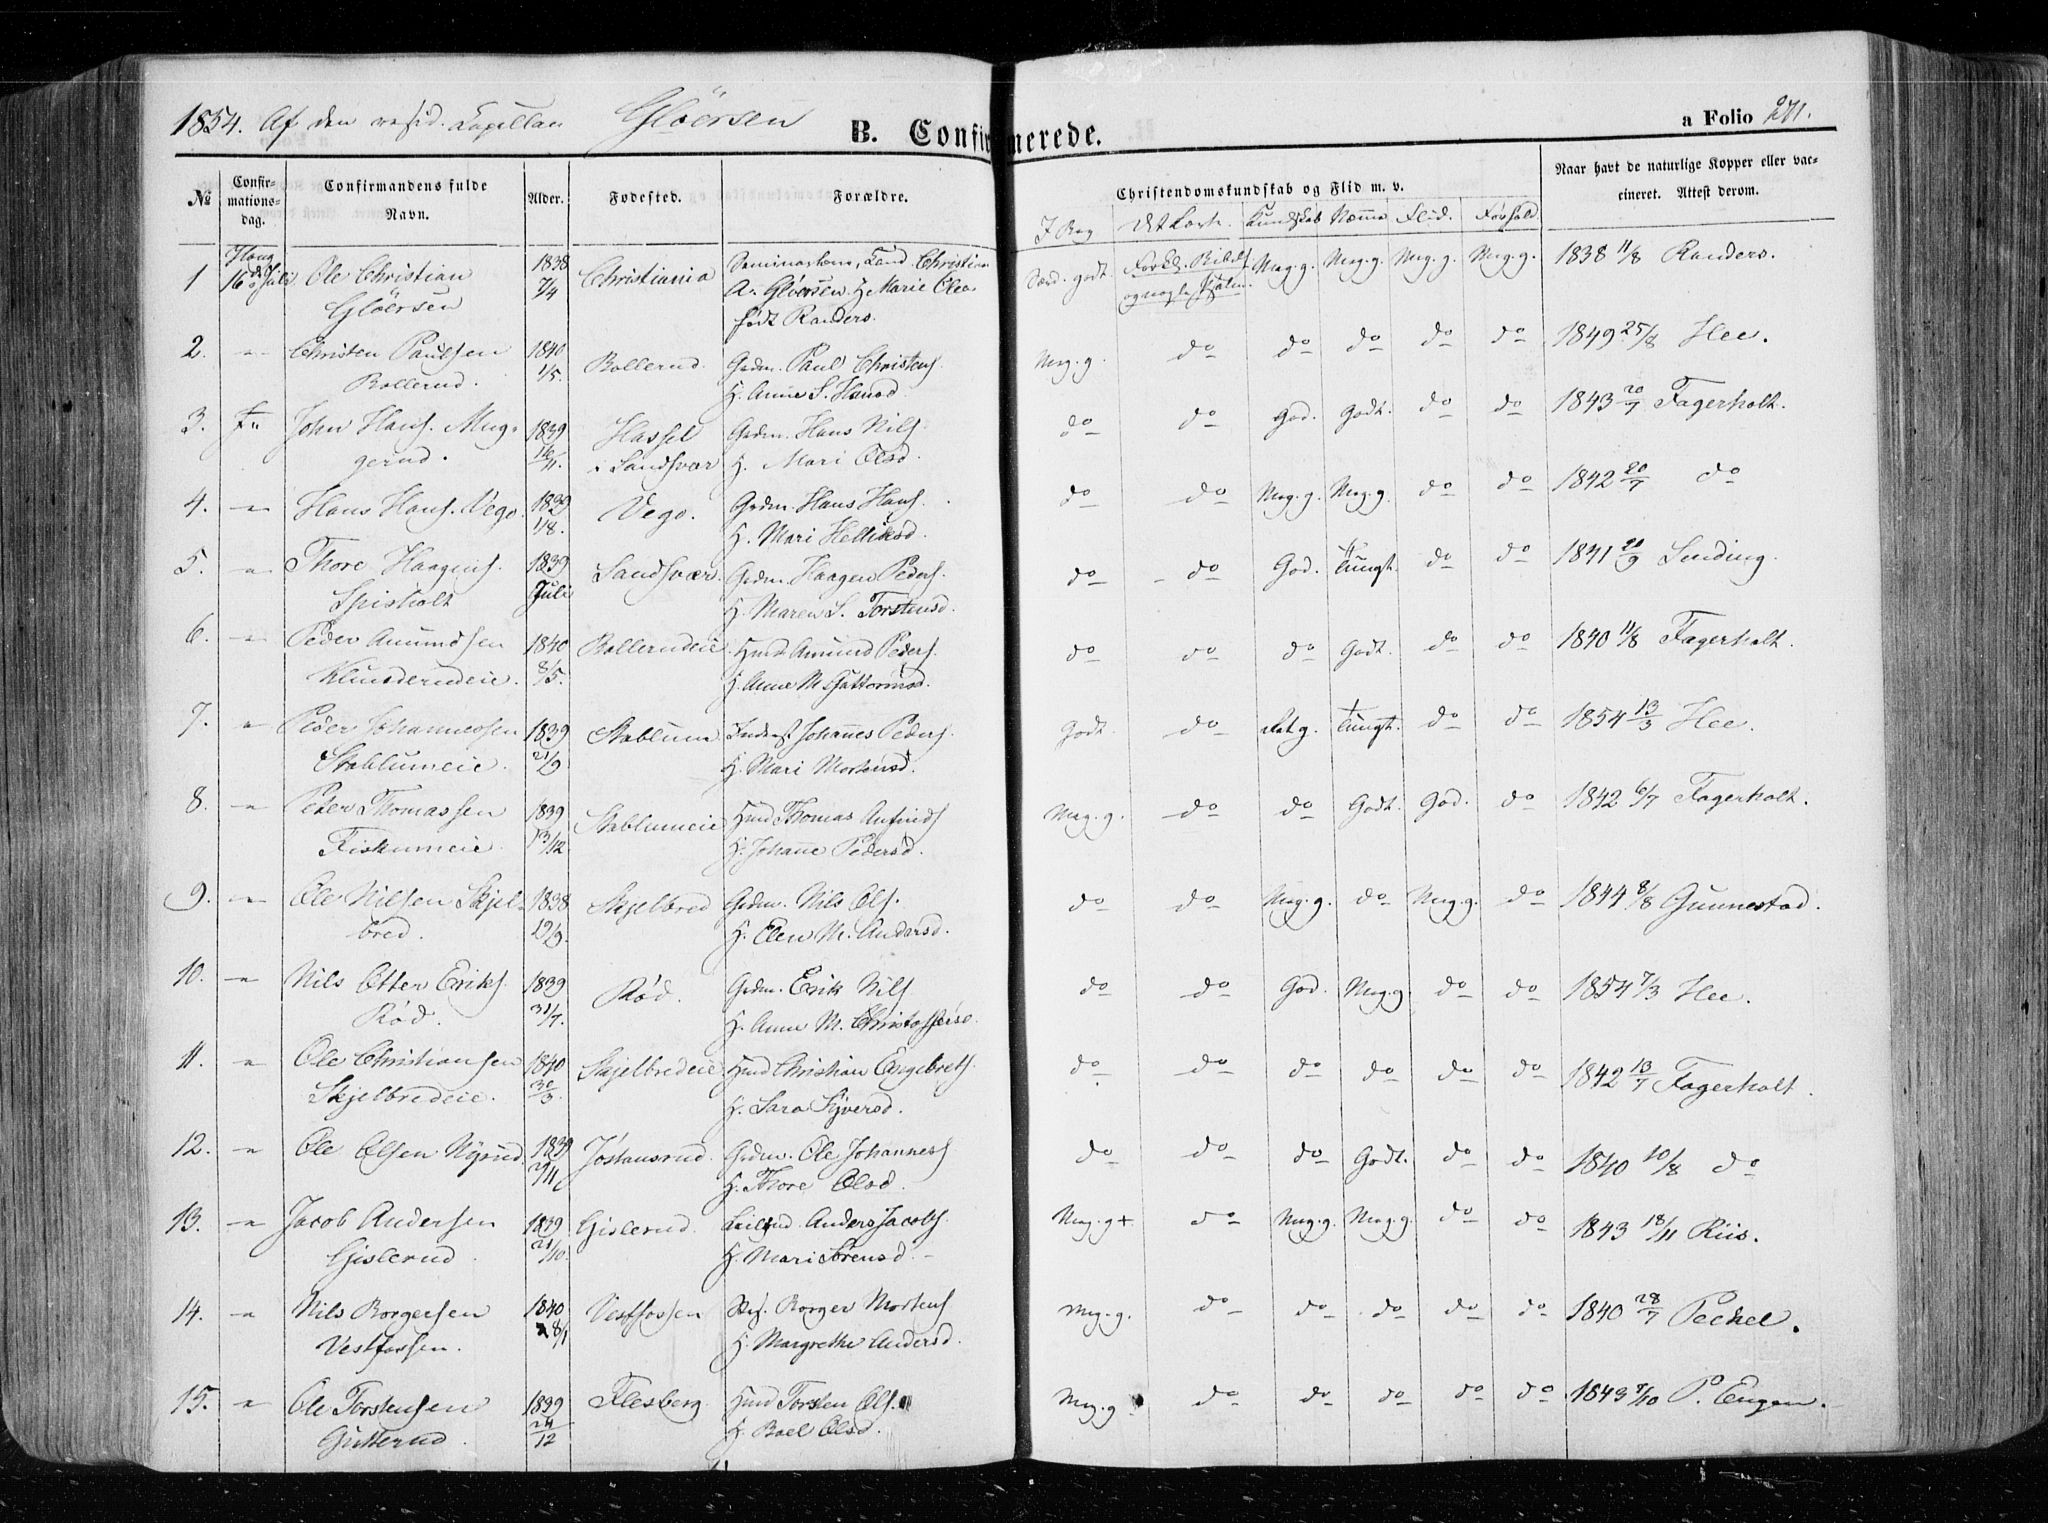 1854. Af den resid. Capellan Glöersen
B. Confirmerede.
a Folio 271.
№ Confirmationsdag. Confirmandens fulde Navn. Alder. Fødested. Forældre. Christendomskundskab og Flid m. v. Naar havt de naturlige Kopper eller vaccineret. Attest derom.
I Bog Kundskab Nemme Flid. Forhold.
1 Haug 16de Juli Ole Christian 1838 Christiania Seminarbest., Cand. Christian Særd. godt Forkl. Bibelh. Meg. g. Meg. g. Meg. g. Meg. g. 1838 11/8 Randers.
Glöersen 7/4 A. Glöersen H. Marie Olea og nogle Psalm.
født Randers.
2. -"- Christen Paulsen 1840 Bollerud. Grdm. Paul Christens. Meg. g. do do do do do 1849 25/8 Hee.
Bollerud. 1/5. H. Anne S. Hansd.
3. John Hans. Mug- 1839 Hassel Grdm. Hans Nils. do do God. Godt. do do 1843 20/7 Fagerholt.
gerud. 16/11. i Sandsvær H. Mari Olsd.
4. -"- Hans Hans. Vego. 1839 Vego. Grdm. Hans Hans. do do Meg. g. Meg. g. do do 1842 20/7 do
1/8. H. Mari Helliksd.
5. -"- Thore Haagens. 1839 Sandsvær. Grdm. Haagen Peders. do do God. Tungt. do do 1841 21/9 Sending.
Spisholt Juli H. Maren S. Torstensd.
6. -"- Peder Amundsen 1840 Bollerudeie. Hmd. Amund Peders. do do do Godt. do do 1840 11/8 Fagerholt.
Klunderudeie. 8/5. H. Anne M. Guttormsd.
7. -"- Peder Johannessen 1839 Stablum Inderst Johannes Peders. Godt. do Tungt. do do 1854 13/3 Hee.
Stablumeie. 21/9. H. Mari Mortensd.
8. -"- Peter Thomassen 1839 Stablumeie Hmd Thomas Anfinds. Meg. g. do do Godt. God. do 1842 6/7 Fagerholt.
Fiskumeie. 13/12. H. Johanne Pedersd.
9. -"- Ole Nilsen Skjel- 1838 Skjelbred Grdm. Nils Ols. do do Meg. g. do Meg. g. do 1844 8/8 Gunnestad.
bred. 29/9. H. Elen M. Andersd.
10. -"- Nils Otter Eriks. 1839 Rød. Grdm. Erik Nils. do do God. Meg. g. do do 1854 7/3 Hee.
Rød. 31/7. H. Anne M. Christophersd.
11. -"- Ole Christiansen 1840 Skjelbredeie Hmd Christian Engebrets. do do do do do do 1842 13/7 Fagerholt.
Skjelbredeie. 30/3. H. Sara Syversd.
12. -"- Ole Olsen Nyrud. 1839 Jöstansrud. Grdm. Ole Johannes. do do do Godt. do do 1840 10/8 do
2/11 H. Thore Olsd.
13. -"- Jacob Andersen 1839 Gislerud. Leilænd. Anders Jacobs. Meg. g+ do Meg. g. Meg. g. do do 1843 18/11 Riis.
Gislerud. 21/10. H. Mari Sörensd.
14. -"- Nils Borgersen 1840 Vestfossen Borger Mortens. Meg. g. do do do do do 1840 28/7 Peckel.
Vestfossen. 28/1 H. Margrethe Andersd.
15. -"- Ole Torstensen 1839 Flesberg. Hmd Torsten Ols. Meg. g. do do do do do 1843 8/10 P. Engen.
Gutterud. 24/12 H. Boel Olsd.